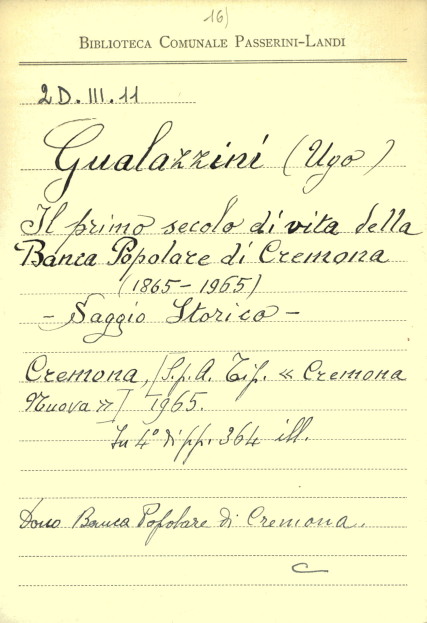 16)
BIBLIOTECA COMUNALE PASSERINI-LANDI
2D.III.11
Gualazzini (Ugo)
Il primo secolo di vita della
Banca Popolare di Cremona
(1865-1965)
- Saggio Storico -
Cremona, [S.p.A. Tip. « Cremona
Nuova »] 1965.
In 4° di pp. 364 ill.
Dono Banca Popolare di Cremona.
C